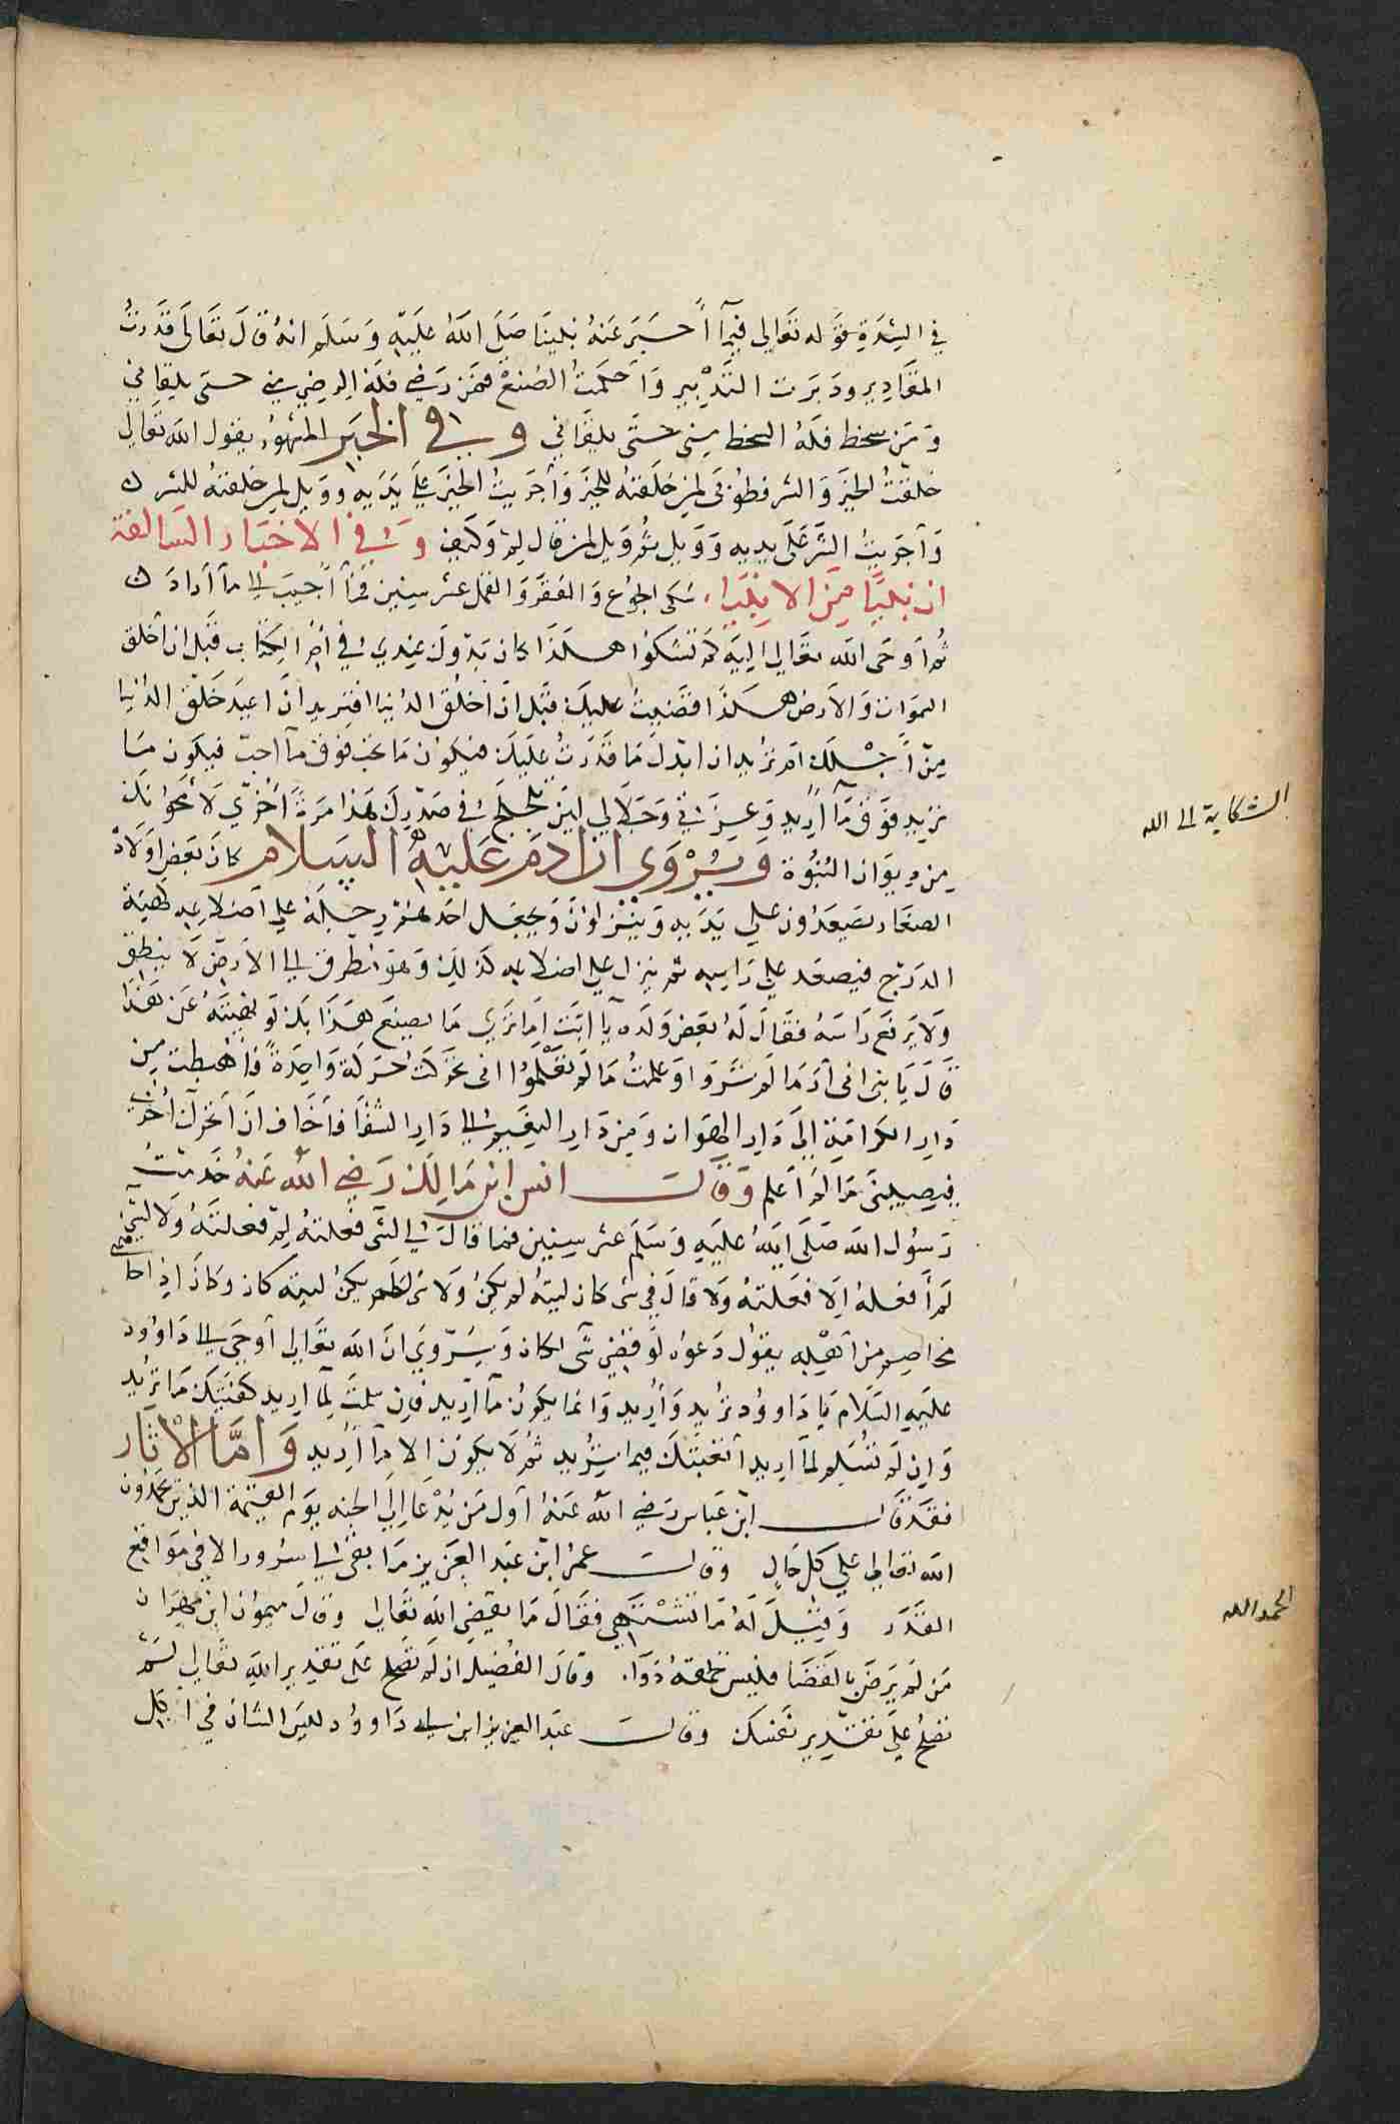 في الشدة قوله تعالى فيما أخبر عنه نبينا صلى الله عليه وسلم انه قال تعالى قدرت
المقادير ودبرت التدبير وأحكمت الصنع فمن رضى فله الرضي مني حتى يلقاني
ومن سخط فله السخط مني حتى يلقاني وفي الخبر المشهور يقول الله تعالى
خلقت الخير والشر فطوبى لمن خلقته للخير وأجريت الخير على يديه وويل لمن خلقته للشر
وأجريت الشر على يديه وويل ثم ويل لمن قال لم وكيف وفي الاخبار السالفة
ان نبيا من الانبياء شكى الجوع والفقر والقمل عشر سنين فما أجيب الى ما أراد
ثم أوحى الله تعالى اليه كم تشكوا هكذا كان بدوك عندي في أم الكتاب قبل ان أخلق
السموات والارض هكذا قضيت عليك قبل ان أخلق الدنيا افتريد ان اعيد خلق الدنيا
من أجلك ام تريد ان ابدل ما قدرت عليك فيكون ما تحب فوق ما أحب فيكون ما
تريد فوق ما أريد وعزتي وجلالي لين تلجلج في صدرك هذا مرة أخرى لأمحونك
من ديوان النبوة ويروى ان ادم عليه السلام كان بعض اولاده
الصغار يصعدون على يديه وينزلون ويجعل احدهم رجله على أضلاعه كهيئة
الدرج فيصعد على راسه ثم ينزل على اضلاعه كذلك وهو مطرق الى الارض لا ينطق
ولا يرفع راسه فقال له بعض ولده يا أبت اما ترى ما يصنع هذا بك لو نهيته عن هذا
قال يا بني اني أرى ما لم تروا وعلمت ما لم تعلموا اني تحركت حركة واحدة فأهبطت من
دار الكرامة إلى دار الهوان ومن دار النعيم الى دار الشقا فأخاف ان اتحرك أخرى
فيصيبني ما لم أعلم وقال انس ابن مالك رضي الله عنه خدمت
رسول الله صلى الله عليه وسلم عشر سنين فما قال لي لشى فعلته لم فعلته ولا لشي
لم أفعله الا فعلته ولا قال في شى كان ليته لم يكن ولا شى لم يكن ليته كان وكان إذا خاصمه
مخاصم من أهله يقول دعوه لو قضي شى لكان ويروى ان الله تعالى أوحى الى داوود
عليه السلام يا داوود تريد وأريد وانما يكون ما أريد فان سلمت لما اريد كفيتك ما تريد
وان لم تسلم لما اريد أتعبتك فيما تريد ثم لا يكون الا ما أريد وأما الأثار
فقد قال ابن عباس رضي الله عنه أول من يدعا إلى الجنه يوم القيمة الذين يحمدون
الله تعالى على كل حال وقال عمر ابن عبد العزيز ما بقى لي سرور الا في مواقع
القدر وقيل له ما تشتهي فقال ما يقضي الله تعالى وقال ميمون ابن مهران
من لم يرض بالقضا فليس لحمقه دوا وقال الفضيل ان لم تصلح على تقدير الله تعالى لم
تصلح على تقدير نفسك وقال عبد العزيز ابن ابى داوود ليس الشان في اكل
الشكاية الى الله
الحمد لله